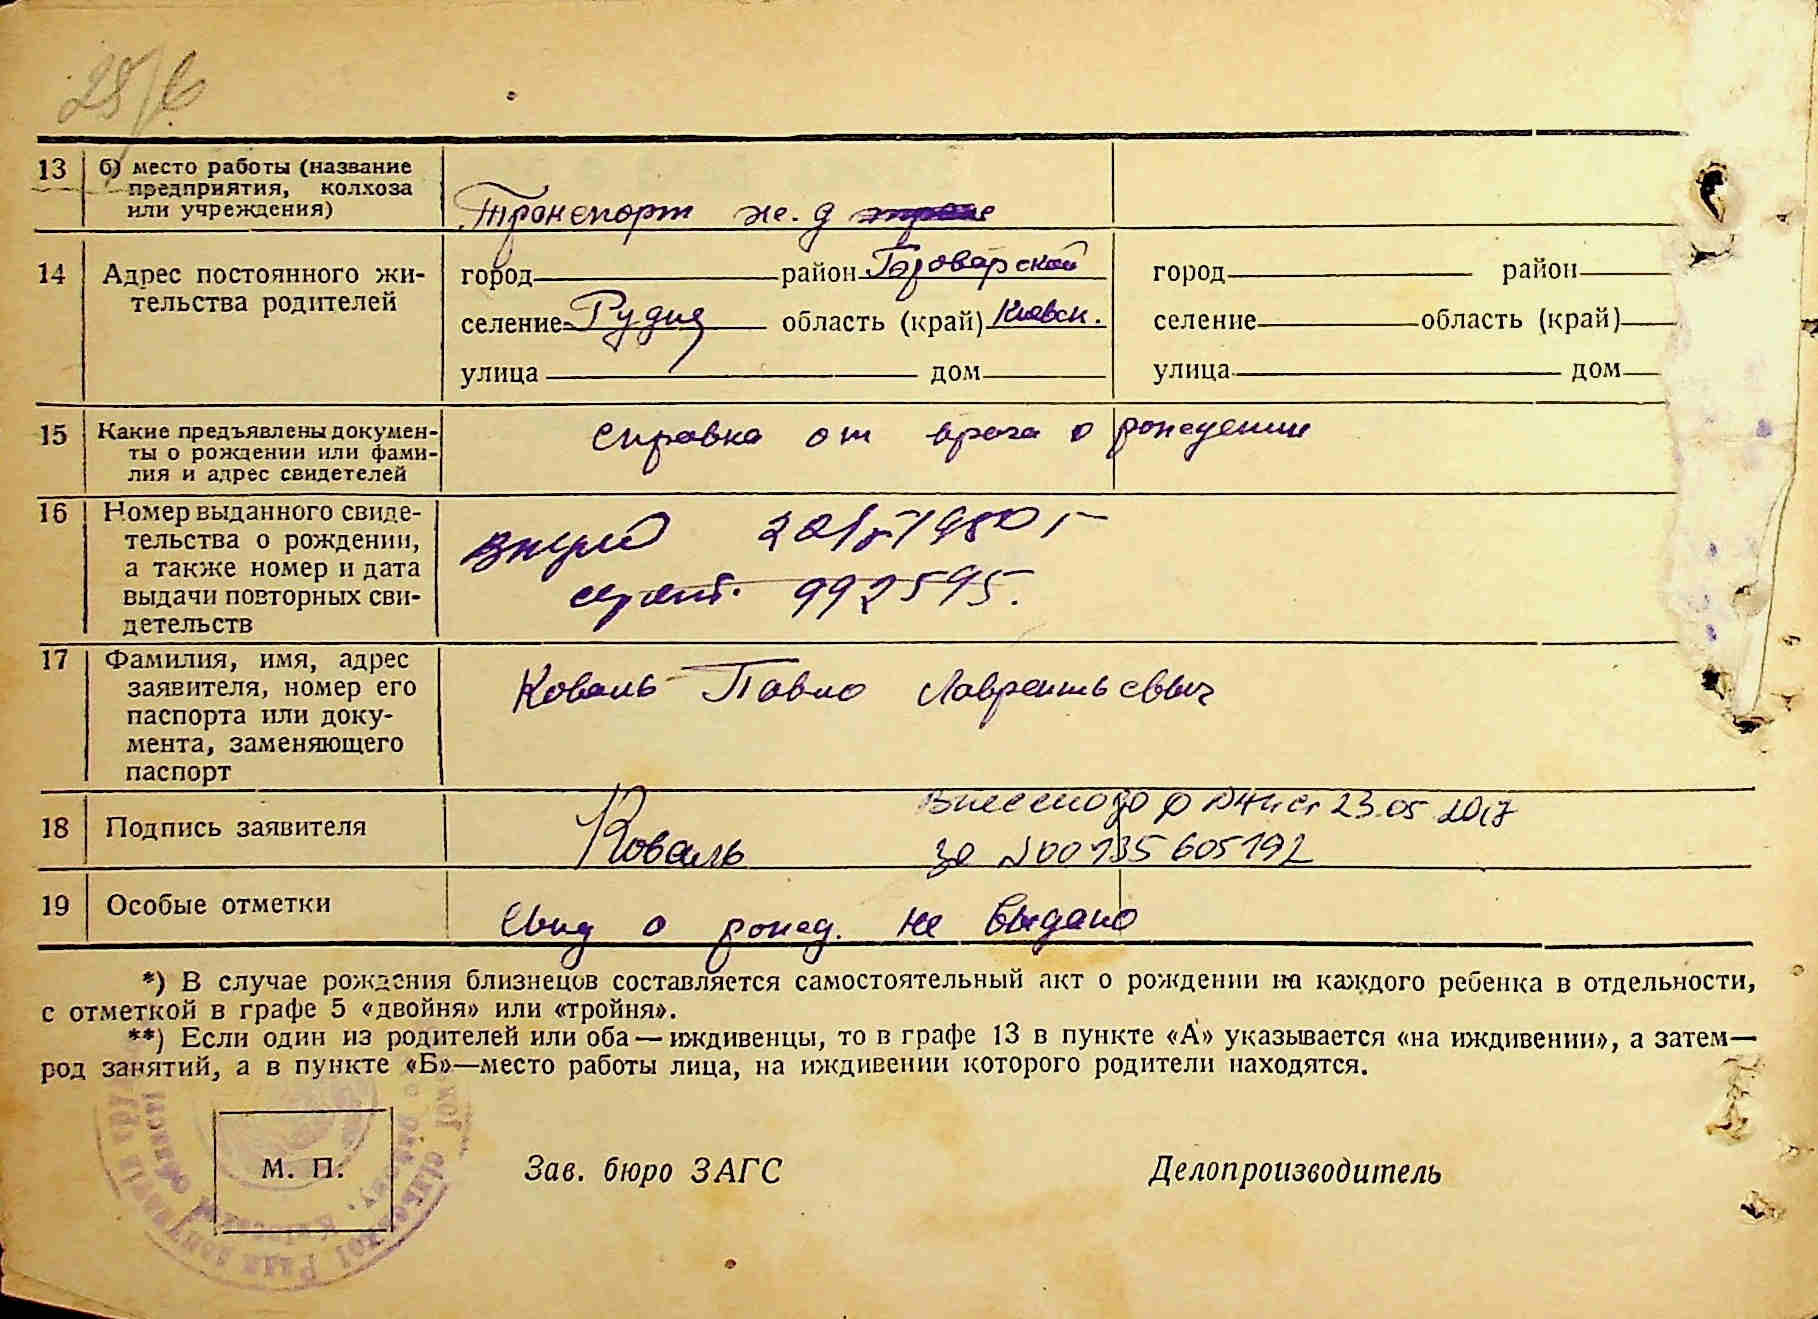 28/6
13 б) место работы (название
предприятия, колхоза
или учреждения)
Транспорт ж. д
14 Адрес постоянного жи-
тельства родителей
город район Броварской
селение Рудня область (край) Киевск.
улица дом
город район
селение область (край)
улица дом
15 Какие предъявлены докумен-
ты о рождении или фами-
лия и адрес свидетелей
справка от врача о рождении
16 Номер выданного свиде-
тельства о рождении,
а также номер и дата
выдачи повторных сви-
детельств
992595.
17 Фамилия, имя, адрес
заявителя, номер его
паспорта или доку-
мента, заменяющего
паспорт
Коваль Павло Лаврентьевич
18 Подпись заявителя
Коваль
23.05.2017
за №00135605192
19 Особые отметки
Свид о рожд. не выдано
*) В случае рождения близнецов составляется самостоятельный акт о рождении на каждого ребенка в отдельности,
с отметкой в графе 5 «двойня» или «тройня».
**) Если один из родителей или оба — иждивенцы, то в графе 13 в пункте «А» указывается «на иждивении», а затем—
род занятий, а в пункте «Б»—место работы лица, на иждивении которого родители находятся.
М. П.
Зав. бюро ЗАГС Делопроизводитель